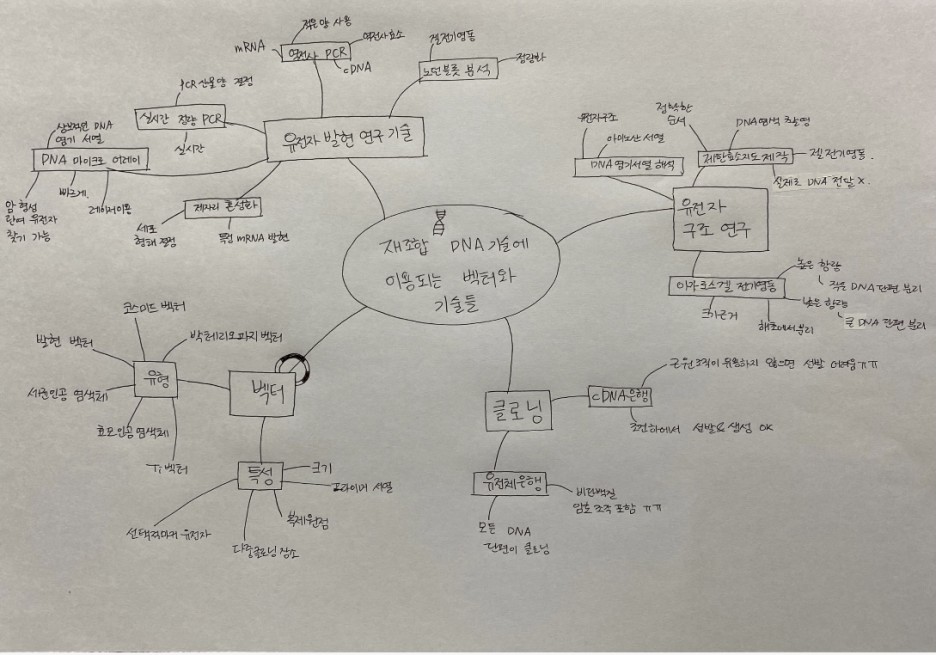 적은양 사용
mRNA
역전사 PCR
역전사효소
cDNA
겔전기영동
노던블롯 분석
정량화
PCR 산물양 결정
실시간 정량 PCR
실시간
유전자 발현 연구 기술
상보적인 DNA
염기 서열
DNA 마이크로 어레이
암 형성
관여 유전자
찾기 가능
빠르게
레이저이용
제자리 혼성화
세포
형태 결정
특정 mRNA 발현
재조합 DNA 기술에
이용되는 벡터와
기술들
유전자구조
아미노산 서열
DNA 염기서열 해석
정확한
순서
DNA 염색 촬영
제한효소지도 제작
겔 전기영동.
실제로 DNA 전달 X.
유전자
구조 연구
아가로스겔 전기영동
높은 함량
작은 DNA 단편 분리
낮은 함량
큰 DNA 단편 분리
크기근거
코스미드 벡터
발현 벡터
박테리오파지 벡터
유형
세균인공 염색체
효모인공 염색체
Ti 벡터
벡터
특성
크기
프라이머 서열
복제원점
다중클로닝 장소
선택적마커 유전자
클로닝
cDNA은행
근원조직이 유용하지 않으면 선발 어려움ㅠㅠ
조건하에서 선발& 생성 OK
유전체은행
비단백질
암호 조각 포함 ㅠㅠ
모든 DNA
단편이 클로닝